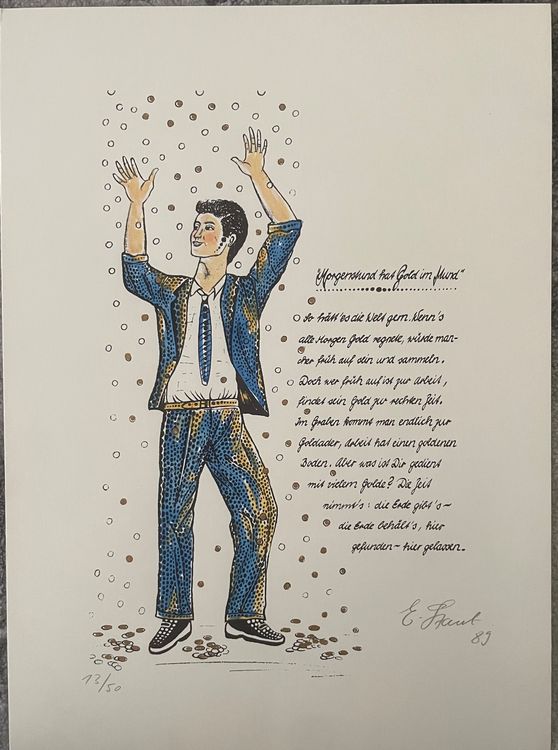 "Morgenstund hat Gold im Mund"
So hätt' es die Welt gern. Wenn's
alle Morgen Gold regnete, würde man-
cher früh auf sein und sammeln.
Doch wer früh auf ist zur Arbeit,
findet sein Gold zur rechten Zeit.
Im Graben kommt man endlich zur
Goldader, Arbeit hat einen goldenen
Boden. Aber was ist Dir gedient
mit vielem Golde? Die Zeit
nimmt's: die Erde gibt's ~
die Erde behält's, hier
gefunden ~ hier gelassen.
E. Staub
89
13/50